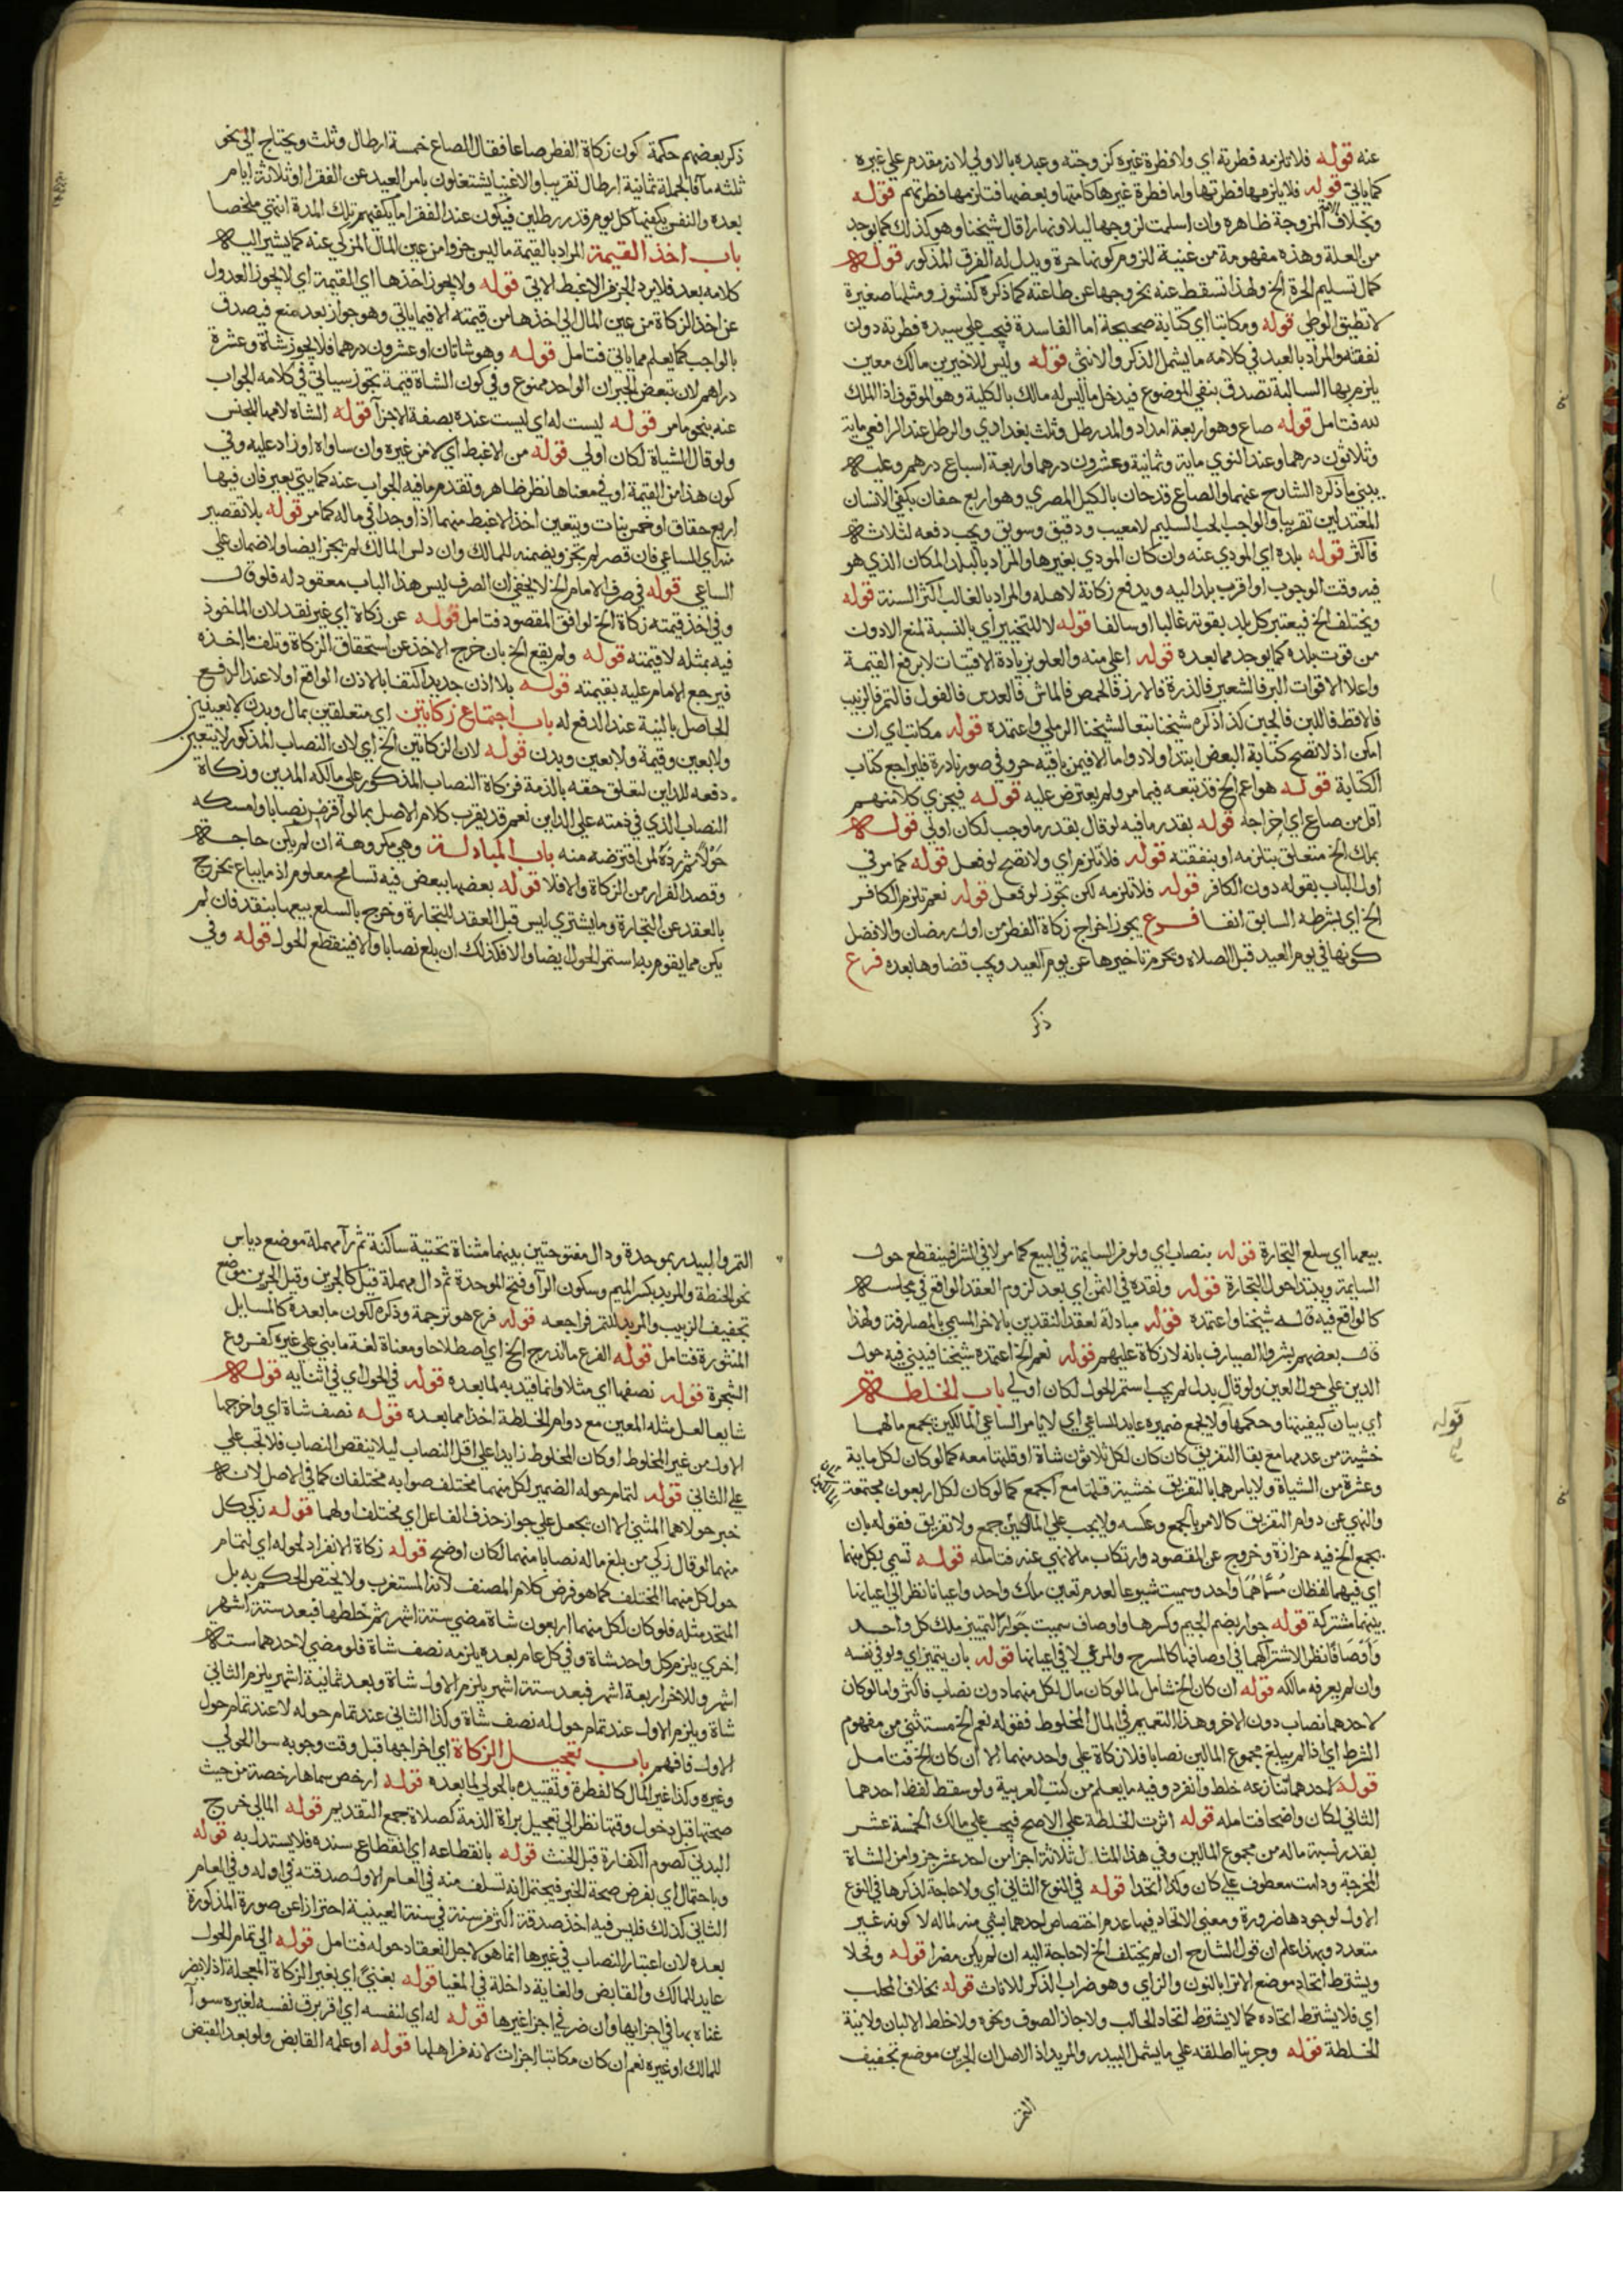 عنه قوله فلا تلزمه فطرته اي ولا فطرة غيره كزوجته وعبده بالاولي لانه مقدم علي غيره
كما ياتي قوله فلا يلزمها فطرتها واما فطرة غيرها كامتها وبعضها فتلزمها فطرتهم قوله
وبخلاف المزوجة ظاهره وان اسلمت لزوجها ليلا ونهارا قال شيخنا وهو كذلك كما يوجد
من العلة وهذه مفهومة من غنية للزوم كونها حرة ويدل له الفرق المذكور قوله
كمال تسليم الحرة الخ ولهذا تسقط عنه بخروجها عن طاعته كما ذكره كنشوز ومثلها صغيرة
لا تطيق الوطي قوله ومكاتبا اي كتابة صحيحة اما الفاسدة فيجب علي سيده فطرته دون
نفقته والمراد بالعبد في كلامه ما يشمل الذكر والانثي قوله وليس للاخيرين مالك معين
يلزم بها السالبة تصدق بنفي الموضوع فيدخل ما ليس له مالك بالكلية وهو الموقوف اذ الملك
لله فتامل قوله صاع وهو اربعة امداد والمد رطل وثلث بغدادي والرطل عند الرافعي ماية
وثلاثون درهما وعند النووي ماية وثمانية وعشرون درهما واربعة اسباع درهم وعليه
يبني ما ذكره الشارح عنهما والصاع قدحان بالكيل المصري وهو اربع حفان بكفي الانسان
المعتدلين تقريبا والواجب الحب السليم لا معيب ودقيق وسويق ويجب دفعه لثلاثة
فاكثر قوله بلده اي المودي عنه وان كان المودي بغيرها والمراد بالبلد المكان الذي هو
فيه وقت الوجوب او اقرب بلد اليه ويدفع زكاته لاهله والمراد بالغالب اكثر السنة قوله
ويختلف الخ فيعتبر كل بلد بقوته غالبا او سالفا قوله لا للتخيير اي بالنسبة لمنع الادون
من قوت بلده كما يوجد مما بعده قوله اعلي منه والعلو بزيادة الاقتيات لا برفع القيمة
واعلا الاقوات البر فالشعير فالذرة فالارز فالحمص فالماش فالعدس فالفول فالتمر فالزبيب
فالاقط فاللبن فالجبن كذا ذكره شيخنا تبعا لشيخنا الرملي واعتمده قوله مكاتب اي ان
امكن اذ لا تصح كتابة البعض ابتدا ولا دواما الا فيمن باقيه حر وفي صور نادرة فليراجع كتاب
الكتابة قوله هو اعم الخ قد تبعه فيما مر ولم يعترض عليه قوله فيجزي كلا منهم
اقل من صاع اي اخراجه قوله بقدر ما فيه لو قال بقدر ما وجب لكان اولي قوله
بملك الخ متعلق بتلزمه او بنفقته قوله فلا تلزم اي ولا تصح لو فعل قوله كما مر في
اول الباب بقوله دون الكافر قوله فلا تلزمه لكن تجوز لو فعل قوله نعم تلزم الكافر
الخ اي بشرطه السابق انفا فرع يجوز اخراج زكاة الفطر من اول رمضان والافضل
كونها في يوم العيد قبل الصلاه وتحرم تاخيرها عن يوم العيد ويجب قضاوها بعده فرع
ذكر
ذكر بعضهم حكمة كون زكاة الفطر صاعا فقال الصاع خمسة ارطال وثلث ويحتاج الي نحو
ثلثه ما فالجملة ثمانية ارطال تقريبا والاغنيا يشتغلون بامر العيد عن الفقرا او ثلاثة ايام
بعده والنفس يكفيها كل يوم قدر رطلين فيكون عند الفقرا ما يكفيهم تلك المدة انتهي ملخصا
باب اخذ القيمة المراد بالقيمة ما ليس جزوا من عين المال المزكي عنه كما يشير اليه
كلامه بعد فلا يرد الجزو الاغبط الاتي قوله ولا يجوز اخذها اي القيمة اي لا يجوز العدول
عن اخذ الزكاة من عين المال الي اخذها من قيمته الا فيما ياتي وهو جواز بعد منع فيصدق
بالواجب كما يعلم مما ياتي فتامل قوله وهو شاتان او عشرون درهما فلا يجوز شاة وعشرة
دراهم لان تبعض الجبران الواحد ممنوع وفي كون الشاة قيمة تجوز سياتي في كلامه الجواب
عنه بنحو ما مر قوله ليست له اي ليست عنده بصفة الاجزآ قوله الشاة لامها للجنس
ولو قال الشياة لكان اولي قوله من الاغبط اي لا من غيره وان ساواه او زاد عليه وفي
كون هذا من القيمة او في معناها نظر ظاهر وتقدم ما فيه الجواب عنه كمايتي بعير فان فيها
اربع حقاق او خمس بنات ويتعين اخذ الاغبط منهما اذا وجدا في ماله كما مر قوله بلا تقصير
من اي الساعي فان قصر لم يجز ويضمنه للمالك وان دلس المالك لم يجز ايضا ولا ضمان علي
الساعي قوله في صرف الامام الخ لا يخفي ان الصرف ليس هذا الباب معقود له فلو قال
وفي اخذ قيمته زكاة الخ لوافق المقصود فتامل قوله عن زكاة اي غير نقد لان الماخوذ
فيه بمثله لا قيمته قوله ولم يقع الخ بان خرج الاخذ عن استحقاق الزكاة وتلف ما اخذه
فيرجع الامام عليه بقيمته قوله بلا اذن جديد اكتفا بالاذن الواقع اولا عند الدفع
الحاصل بالنية عند الدفع له باب اجتماع زكاتين اي متعلقين بمال وبدن لا بعينين
ولا بعين وقيمة ولا بعين وبدن قوله لان الزكاتين الخ اي لان النصاب المذكور لا يتعين
دفعه للداين لتعلق حقه بالذمة فزكاة النصاب المذكور علي مالكه المدين وزكاة
النصاب الذي في ذمته علي الداين نعم قد يقرب كلام الاصل بما لو اقرض نصابا وامسكه
حولا ثم رده لمن اقترضه منه باب المبادلة وهي مكروهة ان لم يكن حاجة
وقصد الفرار من الزكاة والا فلا قوله بعضها ببعض فيه تسامح معلوم اذ ما يباع يخرج
بالعقد عن التجارة وما يشتري ليس قبل العقد للتجارة وخرج بالسلع بيعها بنقد فان لم
يكن مما يقوم به استمر الحول ايضا والا فكذلك ان بلغ نصابا والا فينقطع الحول قوله وفي
بيعها اي سلع التجارة قوله بنصاب اي ولو من السايمة في البيع كما مر لا في الشرا فينقطع حول
السايمة ويبتدا حول للتجارة قوله ونقده في الثمن اي بعد لزوم العقد الواقع في مجلسه
كالواقع فيه قاله شيخنا واعتمده قوله مبادلة لعقد النقدين بالاخر المسمي بالمصارفة ولهذا
قال بعضهم بشروا الصيارف بانه لا زكاة عليهم قوله نعم الخ اعتمده شيخنا فيبني فيه حول
الدين علي حول العين ولو قال بدل لم يجب استمر الحول لكان اولي باب الخلطة
اي بيان كيفيتها وحكمها ولا يجمع ضميره عايد للساعي اي لا يامر الساعي المالكين بجمع مالهما
خشية من عدمها مع بقا التفريق كان كان لكل ثلاثون شاة او قلتها معه كما لو كان لكل ماية
وعشرة من الشياة ولا يامرهما بالتفريق خشية قلتها مع الجمع كما لو كان لكل اربعون مجتمعة
والنهي عن دوام التفريق كالامر بالجمع وعكسه ولا يجب علي المالكين جمع ولا تفريق فقوله بان
يجمع الخ فيه حزازة وخروج عن المقصود وارتكاب ما لا نهي عنه فتامله قوله تسمي بكل منهما
اي فيهما لفظان مسماهما واحد وسميت شيوعا لعدم تعين ملك واحد واعيانا نظرا الي اعيانها
بينهما مشتركة قوله جوار بضم الجيم وكسرها واوصاف سميت جوارا لتمييز ملك كل واحد
واوصافا نظرا لاشتراكهما في اوصافها كالمسرح والمرعي لا في اعيانها قوله بان يتميز اي ولو في نفسه
وان لم يعرفه مالكه قوله ان كان الخ شامل لما لو كان مال لكل منهما دون نصاب فاكثر ولما لو كان
لاحدهما نصاب دون الاخر وهذا التعميم في المال المخلوط فقوله نعم الخ مستثني من مفهوم
الشرط اي اذا لم يبلغ مجموع المالين نصابا فلا زكاة علي واحد منهما الا ان كان الخ فتامل
قوله لاحدهما تنازعه خلط وانفرد وفيه ما يعلم من كتب العربية ولو سقط لفظ احدهما
الثاني لكان واضحا فتامله قوله اثرت الخلطة علي الاصح فيجب علي مالك الخمسة عشر
بقدر نسبة ماله من مجموع المالين وفي هذا المثال ثلاثة اجزا من احد عشر جزوا من الشاة
المخرجة ودامت معطوف علي كان وكذا اتحدا قوله في النوع الثاني اي ولا حاجة لذكرها في النوع
الاول لوجودها ضرورة ومعني الاتحاد فيها عدم اختصاص احدهما بشي منه لماله لا كونه غير
متعدد وبهذا علم ان قول الشارح ان لم يختلف الخ لا حاجة اليه ان لم يكن مضرا قوله وفحلا
ويشترط اتحاد موضع الانزا بالنون والزاي وهو ضراب الذكر للاناث قوله بخلاف المحلب
اي فلا يشترط اتحاده كما لا يشترط اتحاد الحالب ولا جاز الصوف ونحوه ولا خلط الالبان ولا نية
الخلطة قوله وجرينا اطلقه علي ما يشمل البيدر والمربد اذ الاصل ان الجرين موضع تجفيف
التمر
قوله
التمر والبيدر بموحدة ودال مفتوحتين بينهما مثناة تحتية ساكنة ثم رآ مهملة موضع دياس
نحو الحنطة والمربد بكسر الميم وسكون الرآ وفتح الموحدة ثم دال مهملة قيل كالجرين وقيل الجرين موضع
تجفيف الزبيب والمربد للتمر فراجعه قوله فرع هو ترجمة وذكره لكون ما بعده كالمسايل
المنثورة فتامل قوله الفرع ما اندرج الخ اي اصطلاحا ومعناة لغة ما بني علي غيره كفروع
الشجرة قوله نصفها اي مثلا وانما قيد به لما بعده قوله في الحول اي في اثنايه قوله
شايعا لعل مثله المعين مع دوام الخلطة اخذا مما بعده قوله نصف شاة اي واخرجها
الاول من غير المخلوط او كان المخلوط زايدا علي اقل النصاب ليلا ينقص النصاب فلا تجب علي
علي الثاني قوله لتمام حوله الضمير لكل منهما مختلف صوابه مختلفان كما في الاصل لانه
خبر حولاهما المثني الا ان يجعل علي جواز حذف الفاعل اي مختلف اولهما قوله زكي كل
منهما لو قال زكي من بلغ ماله نصابا منهما لكان اوضح قوله زكاة الانفراد لحوله اي لتمام
حول كل منهما المختلف كما هو فرض كلام المصنف لانه المستغرب ولا يختص الحكم به بل
المتحد مثله فلو كان لكل منهما اربعون شاة مضي ستة اشهر ثم خلطها فبعد ستة اشهر
اخري يلزم كل واحد شاة وفي كل عام بعده يلزمه نصف شاة فلو مضي لاحدهما ستة
اشهر وللاخر اربعة اشهر فبعد ستة اشهر يلزم الاول شاة وبعد ثمانية اشهر يلزم الثاني
شاة ويلزم الاول عند تمام حول له نصف شاة وكذا الثاني عند تمام حوله لا عند تمام حول
الاول فافهم باب تعجيل الزكاة اي اخراجها قبل وقت وجوبه سوا الحولي
وغيره وكذا غير المال كالفطرة وتقييده بالحولي لما بعده قوله ارخص سماها رخصة من حيث
صحتها قبل دخول وقتها نظرا الي تعجيل براة الذمة كصلاة جمع التقديم قوله المالي خرج
البدني كصوم الكفارة قبل الحنث قوله بانقطاعه اي انقطاع سنده فلا يستدل به قوله
وباحتمال اي بفرض صحة الخبر فيحتمل انه تسلف منه في العام الاول صدقته في اوله وفي العام
الثاني كذلك فليس فيه اخذ صدقة اكثر من سنة في سنة العينية احترازا عن صورة المذكورة
بعده لان اعتبار النصاب في غيرها انما هو لاجل انعقاد حوله فتامل قوله الي تمام الحول
عايد للمالك والقابض والغاية داخلة في المغيا قوله بغني اي بغير الزكاة المعجلة اذ لا يضر
غناه بها في اجزايها وان ضر في اجزا غيرها قوله له اي لنفسه اي اقر برق نفسه لغيره سوآ
للمالك او غيره نعم ان كان مكاتبا اجزات لانه من اهلها قوله او علمه القابض ولو بعد القبض